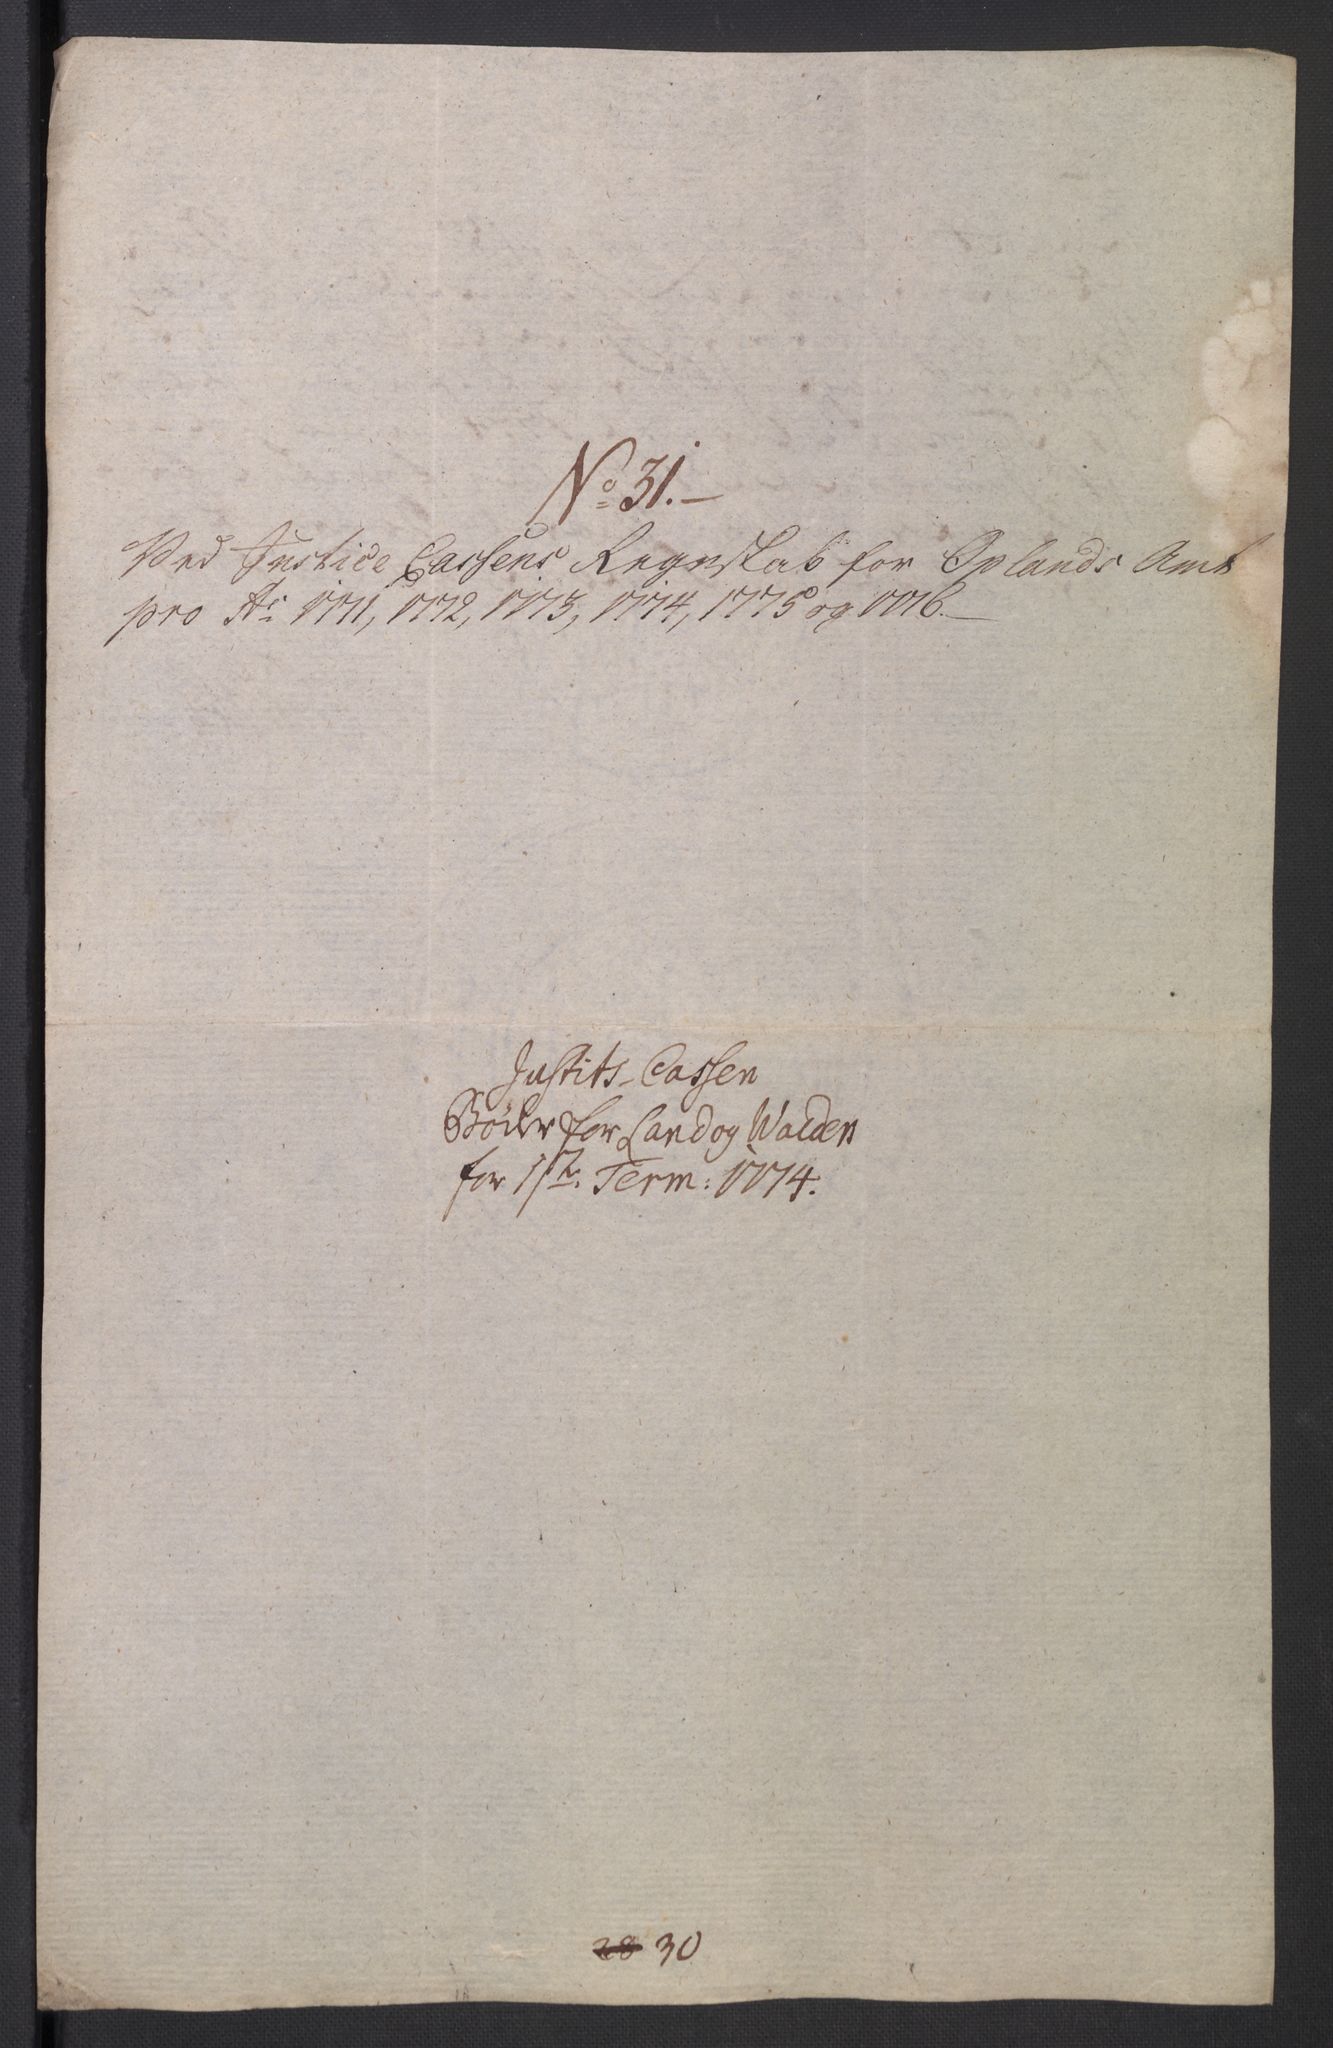 No 31.–
Ved Justice Cassens Regnskab for Oplands Amt
pro Ao 1771, 1772, 1773, 1774, 1775 og 1776.–
Justits-Cassen
Böder for Land og Walders
for 1ste Term: 1774.
28 30